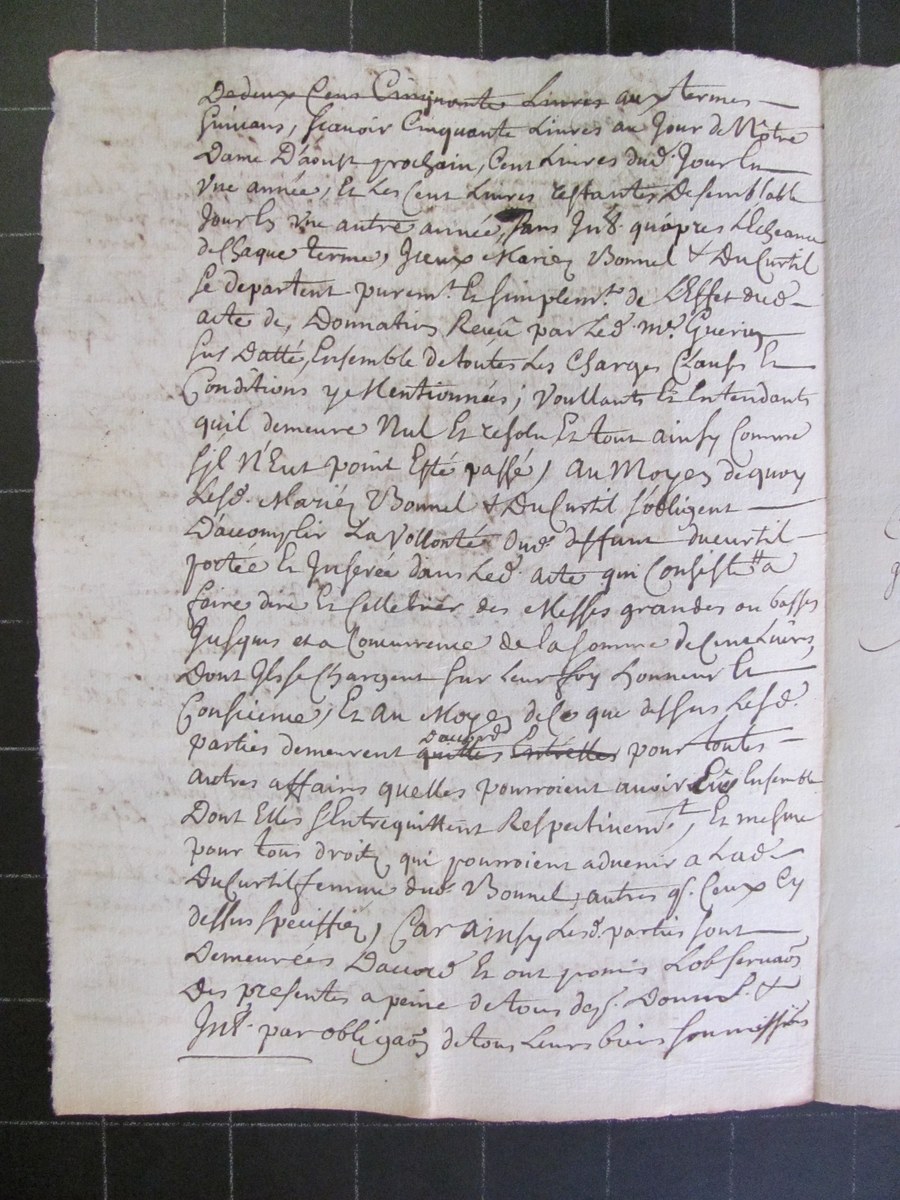 De deux Cens Cinquante Livres aux termes
suivans, scavoir Cinquante Livres au Jour de Nostre
Dame D'aoust prochain, Cent Livres dud. Jour En
Vne année, Et Les Cent Livres restantes De semblable
Jour En Vne autre année, sans Int. qu'apres L'Echeance
de Chaque terme, Iceux Mariez Bonnel & DuCurtil
se departent purem.t Et simplem.t de L'Effet dud.
acte de, Donnation Receu par Led. me. Guerin
sus Datté, Ensemble de toutes Les Charges Clauses Et
Conditions y Mentionnées; Voullants Et Entendants
quil demeure Nul Et resolu Et tout ainsy Comme
sil N'Eut point Esté passé, au Moyen de quoy
Lesd. Mariéz Bonnel & DuCurtil s'obligent
D'accomplir La Vollonté Dud. deffunt ducurtil
portée Et Inserée dans Led. acte qui Consiste a
faire dire Et Cellebrer des Messes grandes ou basses
Jusques et a Concurrence de la somme de Cent Livres,
Dont Ils se Chargent sur Leur foy honneur Et
Conscience, Et au Moyen de Ce que dessus Lesd.
parties demeurent quittes Entrelles pour toutes
D'accord
autres affaires quelles pourroient avoir Eües Ensemble
Dont Elles s'Entrequittent Respectivem.t, Et mesme
pour tous droitz qui pourroient advenir a Lad.
DuCurtil femme dud. Bonnel, autres q. Ceux Cy
dessus speciffiez, Car ainsy Lesd. parties sont
Demeurées D'accord Et ont promis L'observaõn
Des presentes a peine de tous des. Domm. &
Int. par obligaõn de tous Leurs biens soumissions